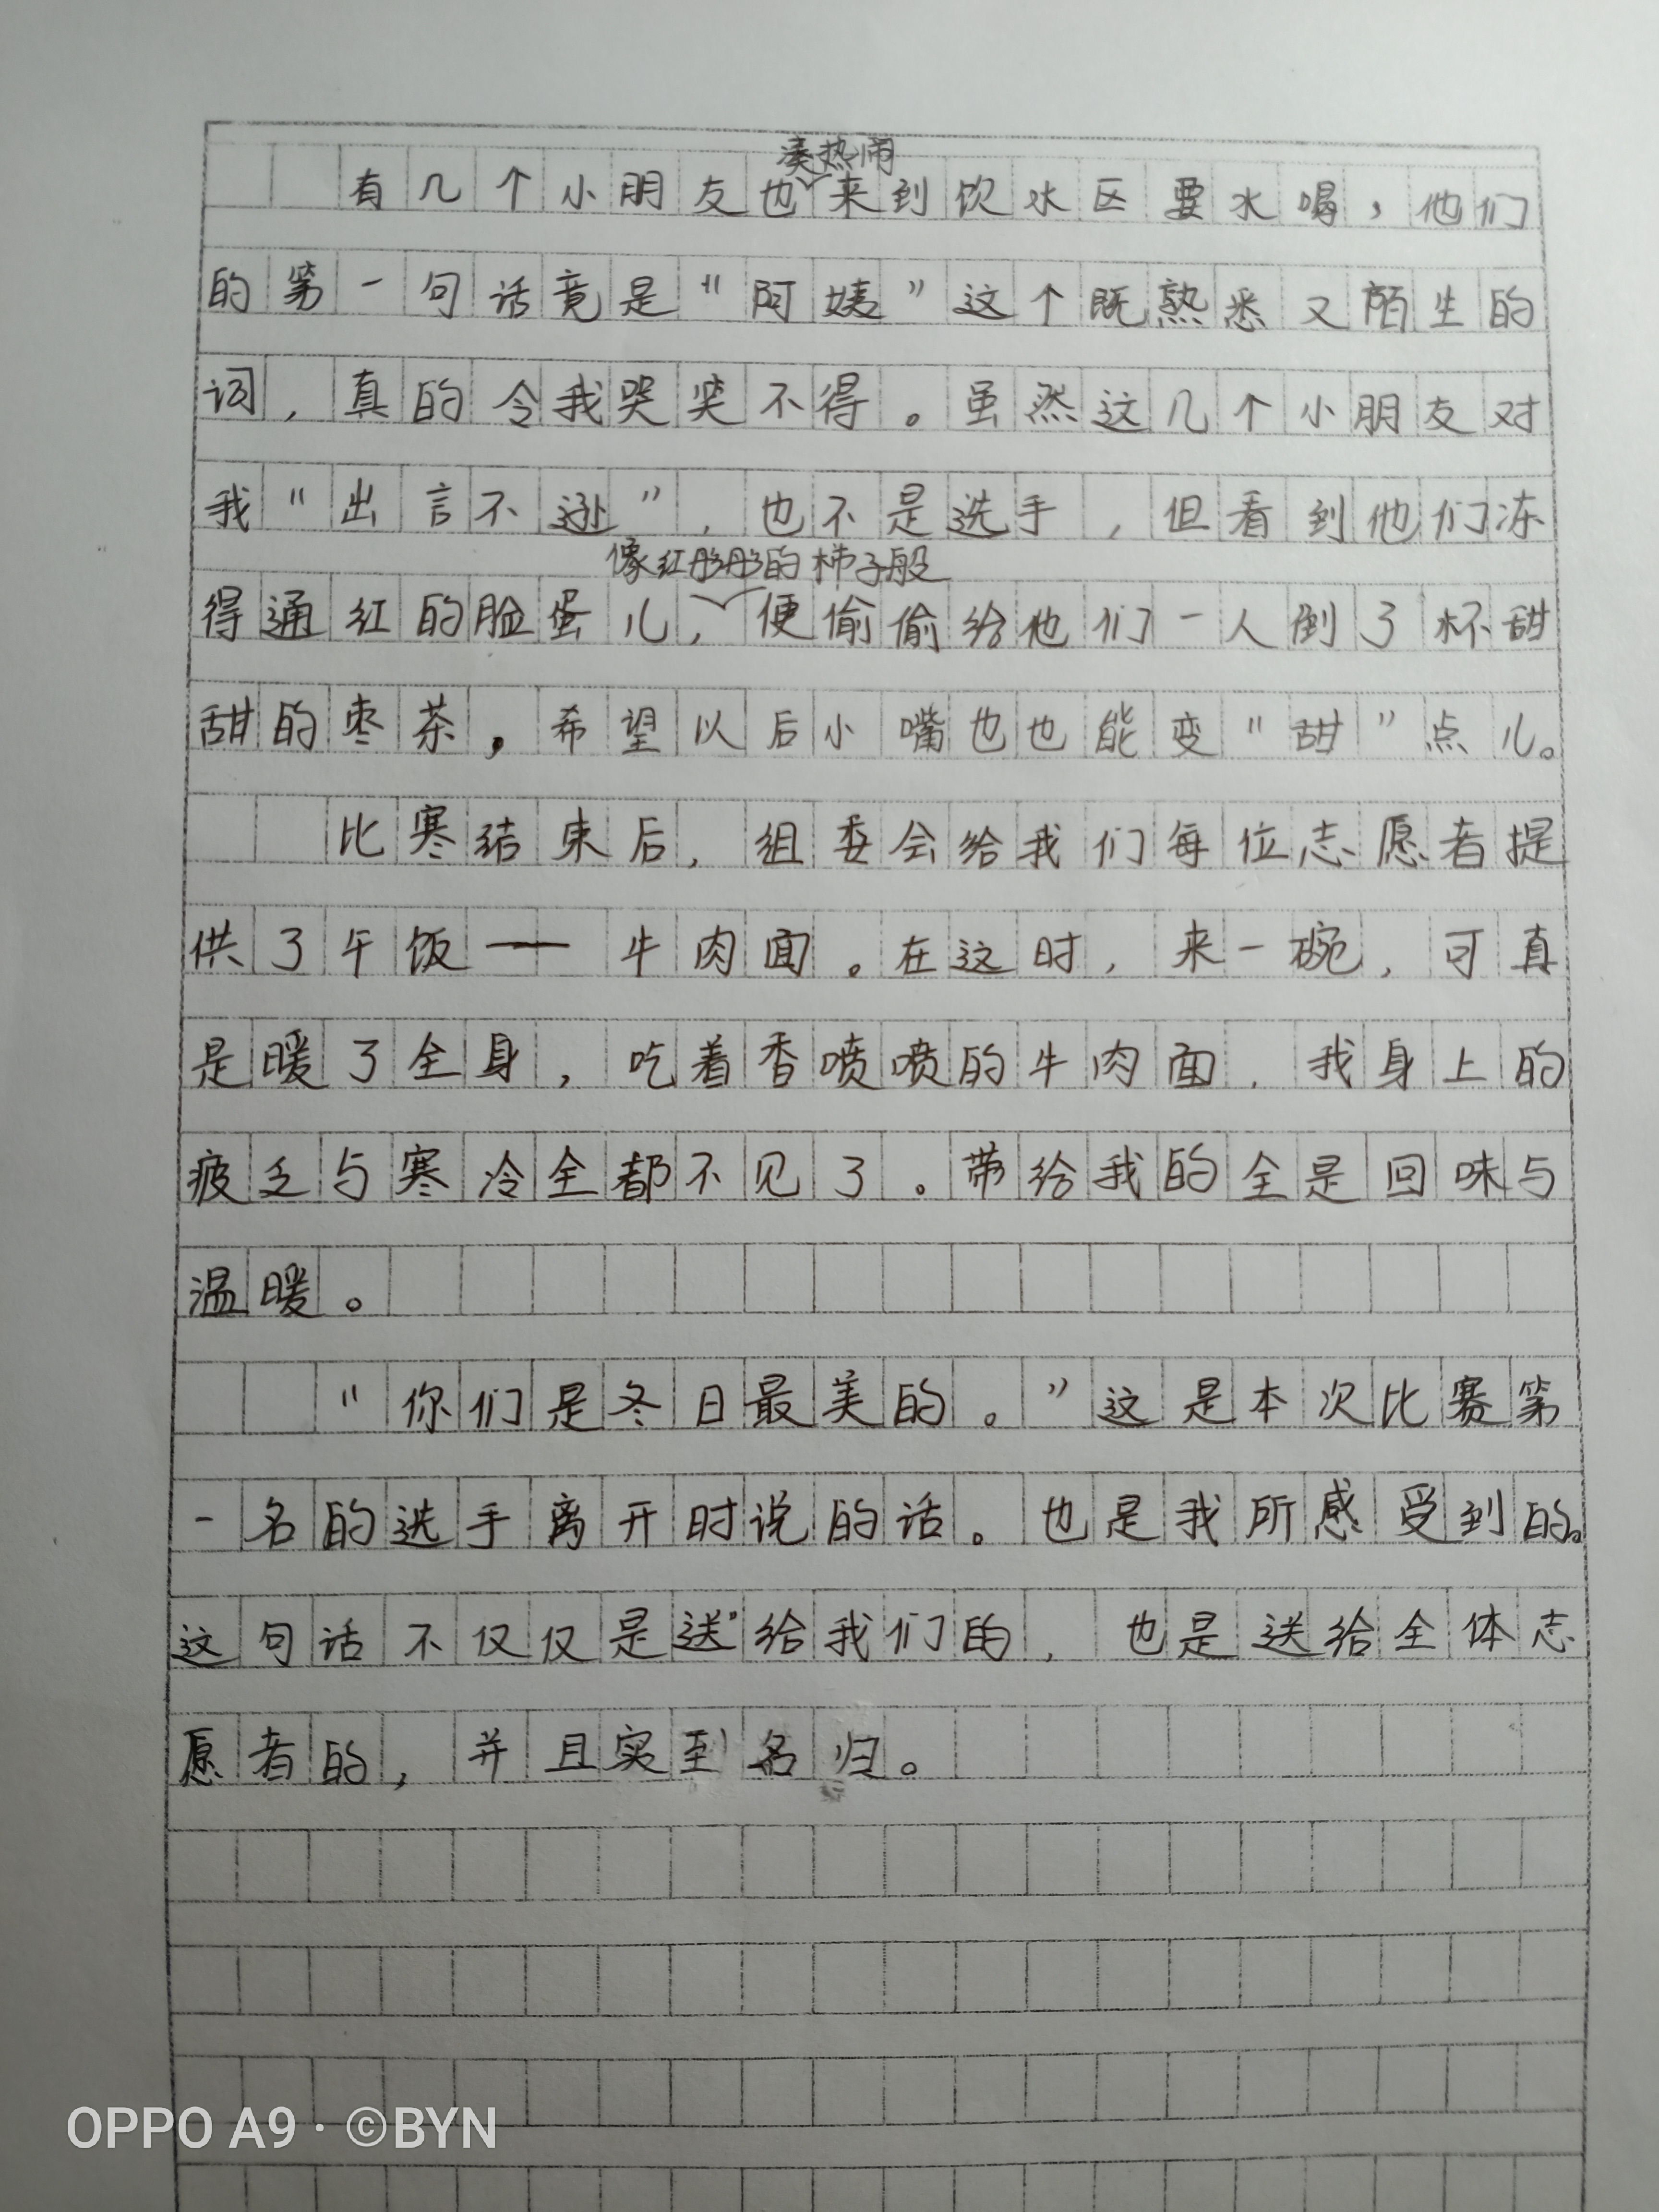 凑热闹
有几个小朋友也来到饮水区要水喝，他们
的第一句话竟是“阿姨”这个既熟悉又陌生的
词，真的令我哭笑不得。虽然这几个小朋友对
我“出言不逊”，也不是选手，但看到他们冻
像红彤彤的柿子般
得通红的脸蛋儿，便偷偷给他们一人倒了杯甜
甜的枣茶，希望以后小嘴也也能变“甜”点儿。
比寒结束后，组委会给我们每位志愿者提
供了午饭——牛肉面。在这时，来一碗，可真
是暖了全身，吃着香喷喷的牛肉面，我身上的
疲乏与寒冷全都不见了。带给我的全是回味与
温暖。
“你们是冬日最美的。”这是本次比赛第
一名的选手离开时说的话。也是我所感受到的。
这句话不仅仅是送给我们的，也是送给全体志
愿者的，并且实至名归。
OPPO A9 · ©BYN